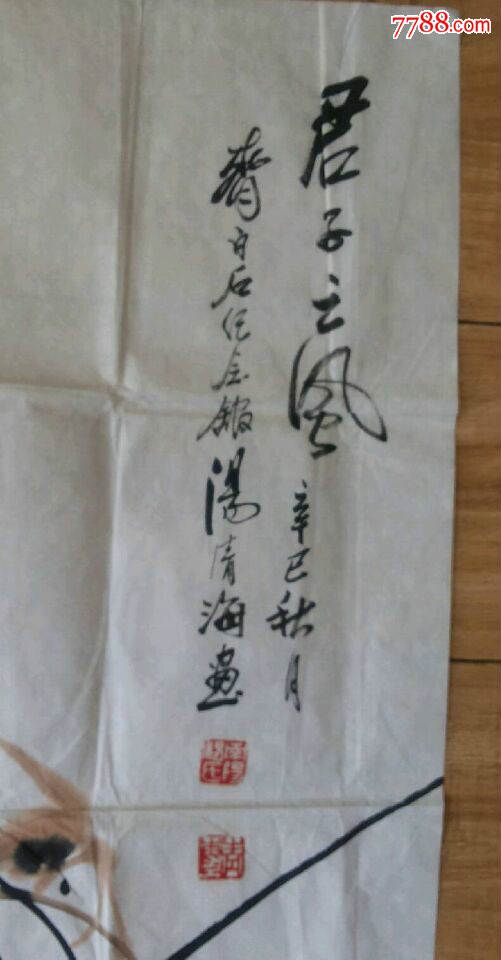 7788.com
君子之風 辛巳秋月
齊白石纪念館湯清海畫